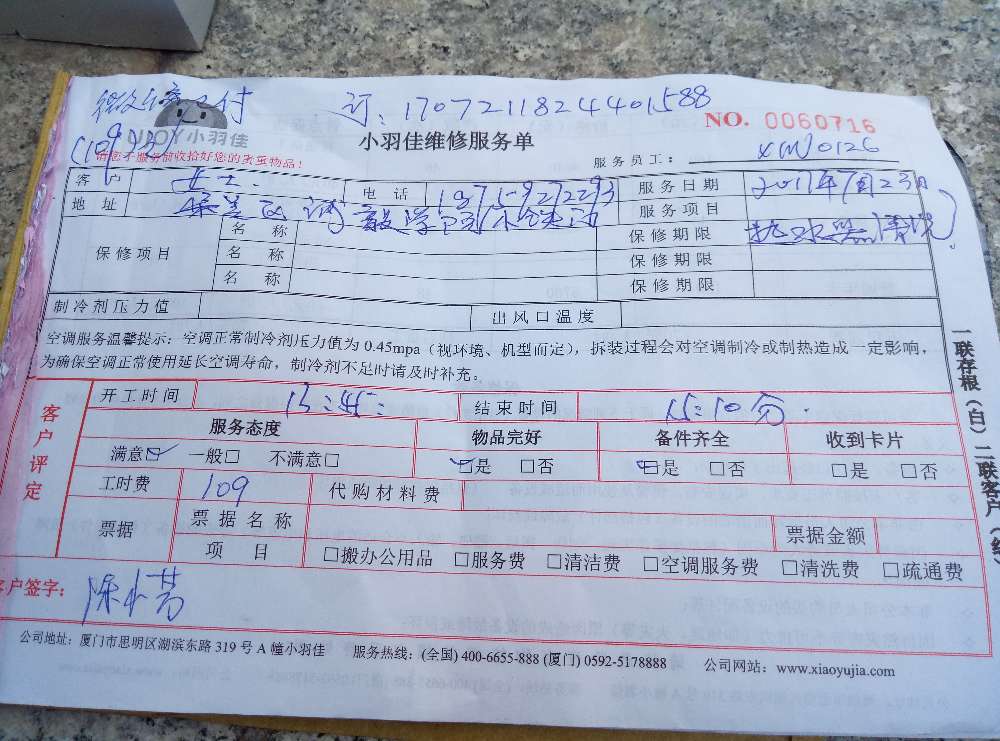 付 订: 1707211824401588
JOY小羽佳 小羽佳维修服务单 NO. 0060716
请您在服务前收拾好您的贵重物品! 服务员工: XM0126
客户 女士. 电话 服务日期 2017年7月23日
地址 集美区 学院 服务项目 热水器清洗
保修项目 名称 保修期限
名称 保修期限
名称 保修期限
制冷剂压力值 出风口温度
空调服务温馨提示: 空调正常制冷剂压力值为 0.45mpa (视环境、机型而定), 拆装过程会对空调制冷或制热造成一定影响,
为确保空调正常使用延长空调寿命, 制冷剂不足时请及时补充。
一联存根(白) 二联客户(红
客户评定
开工时间 13:45: 结束时间 15:10分.
服务态度 物品完好 备件齐全 收到卡片
满意□ 一般□ 不满意□ □是 □否 □是 □否 □是 □否
工时费 109 代购材料费
票据 票据名称 票据金额
项目 □搬办公用品 □服务费 □清洁费 □空调服务费 □清洗费 □疏通费
客户签字: 陈小芳
公司地址: 厦门市思明区湖滨东路 319 号 A 幢小羽佳 服务热线: (全国) 400-6655-888 (厦门) 0592-5178888 公司网站: www.xiaoyujia.com